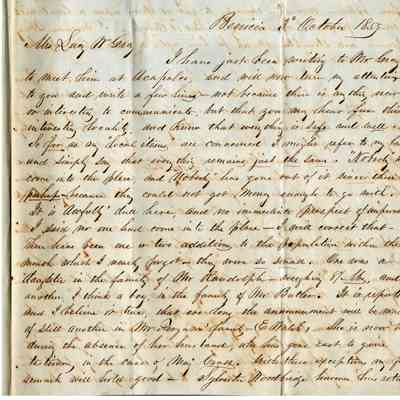 Benicia 3d October 185
Mrs. Lucy W Gray
I have just been writing to Mr Gray
to meet him at Acapulco, and will now turn my attention
to you and write a few lines - not because there is any thing new
or interesting to communicate, but that you may hear from this
interesting locality and know that everything is safe and well -
So far as my local items are concerned I might refer to my la
and simply say that every thing remains just the same. "Nobody
come into the place, and "Nobody" has gone out of it since then
perhaps because they could not get money enough to go with.
It is awfully dull here, and no immediate prospect of improve
I said no one had come into the place - I will correct that -
there has been one or two additions to the population within the
month which I nearly forgot - they were so small. One was a
daughter in the family of Mr Randolph - weighing 17 lbs, and
another, I think a boy, in the family of Mr Butler. It is reporte
and I believe is true, that ere long the announcement will be made
of still another in Mr family - she is now
during the absence of her husband, who has gone east to
testimony, in the case of Maj these exceptions my
remark will hold good - Sylvester Woodbridge